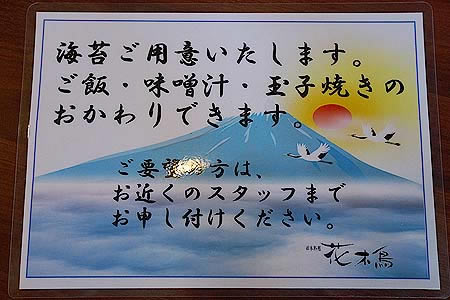 海苔ご用意いたします。
ご飯・味噌汁・玉子焼きの
おかわりできます。
ご要望の方は、
お近くのスタッフまで
お申し付けください。
日本料理 花木鳥